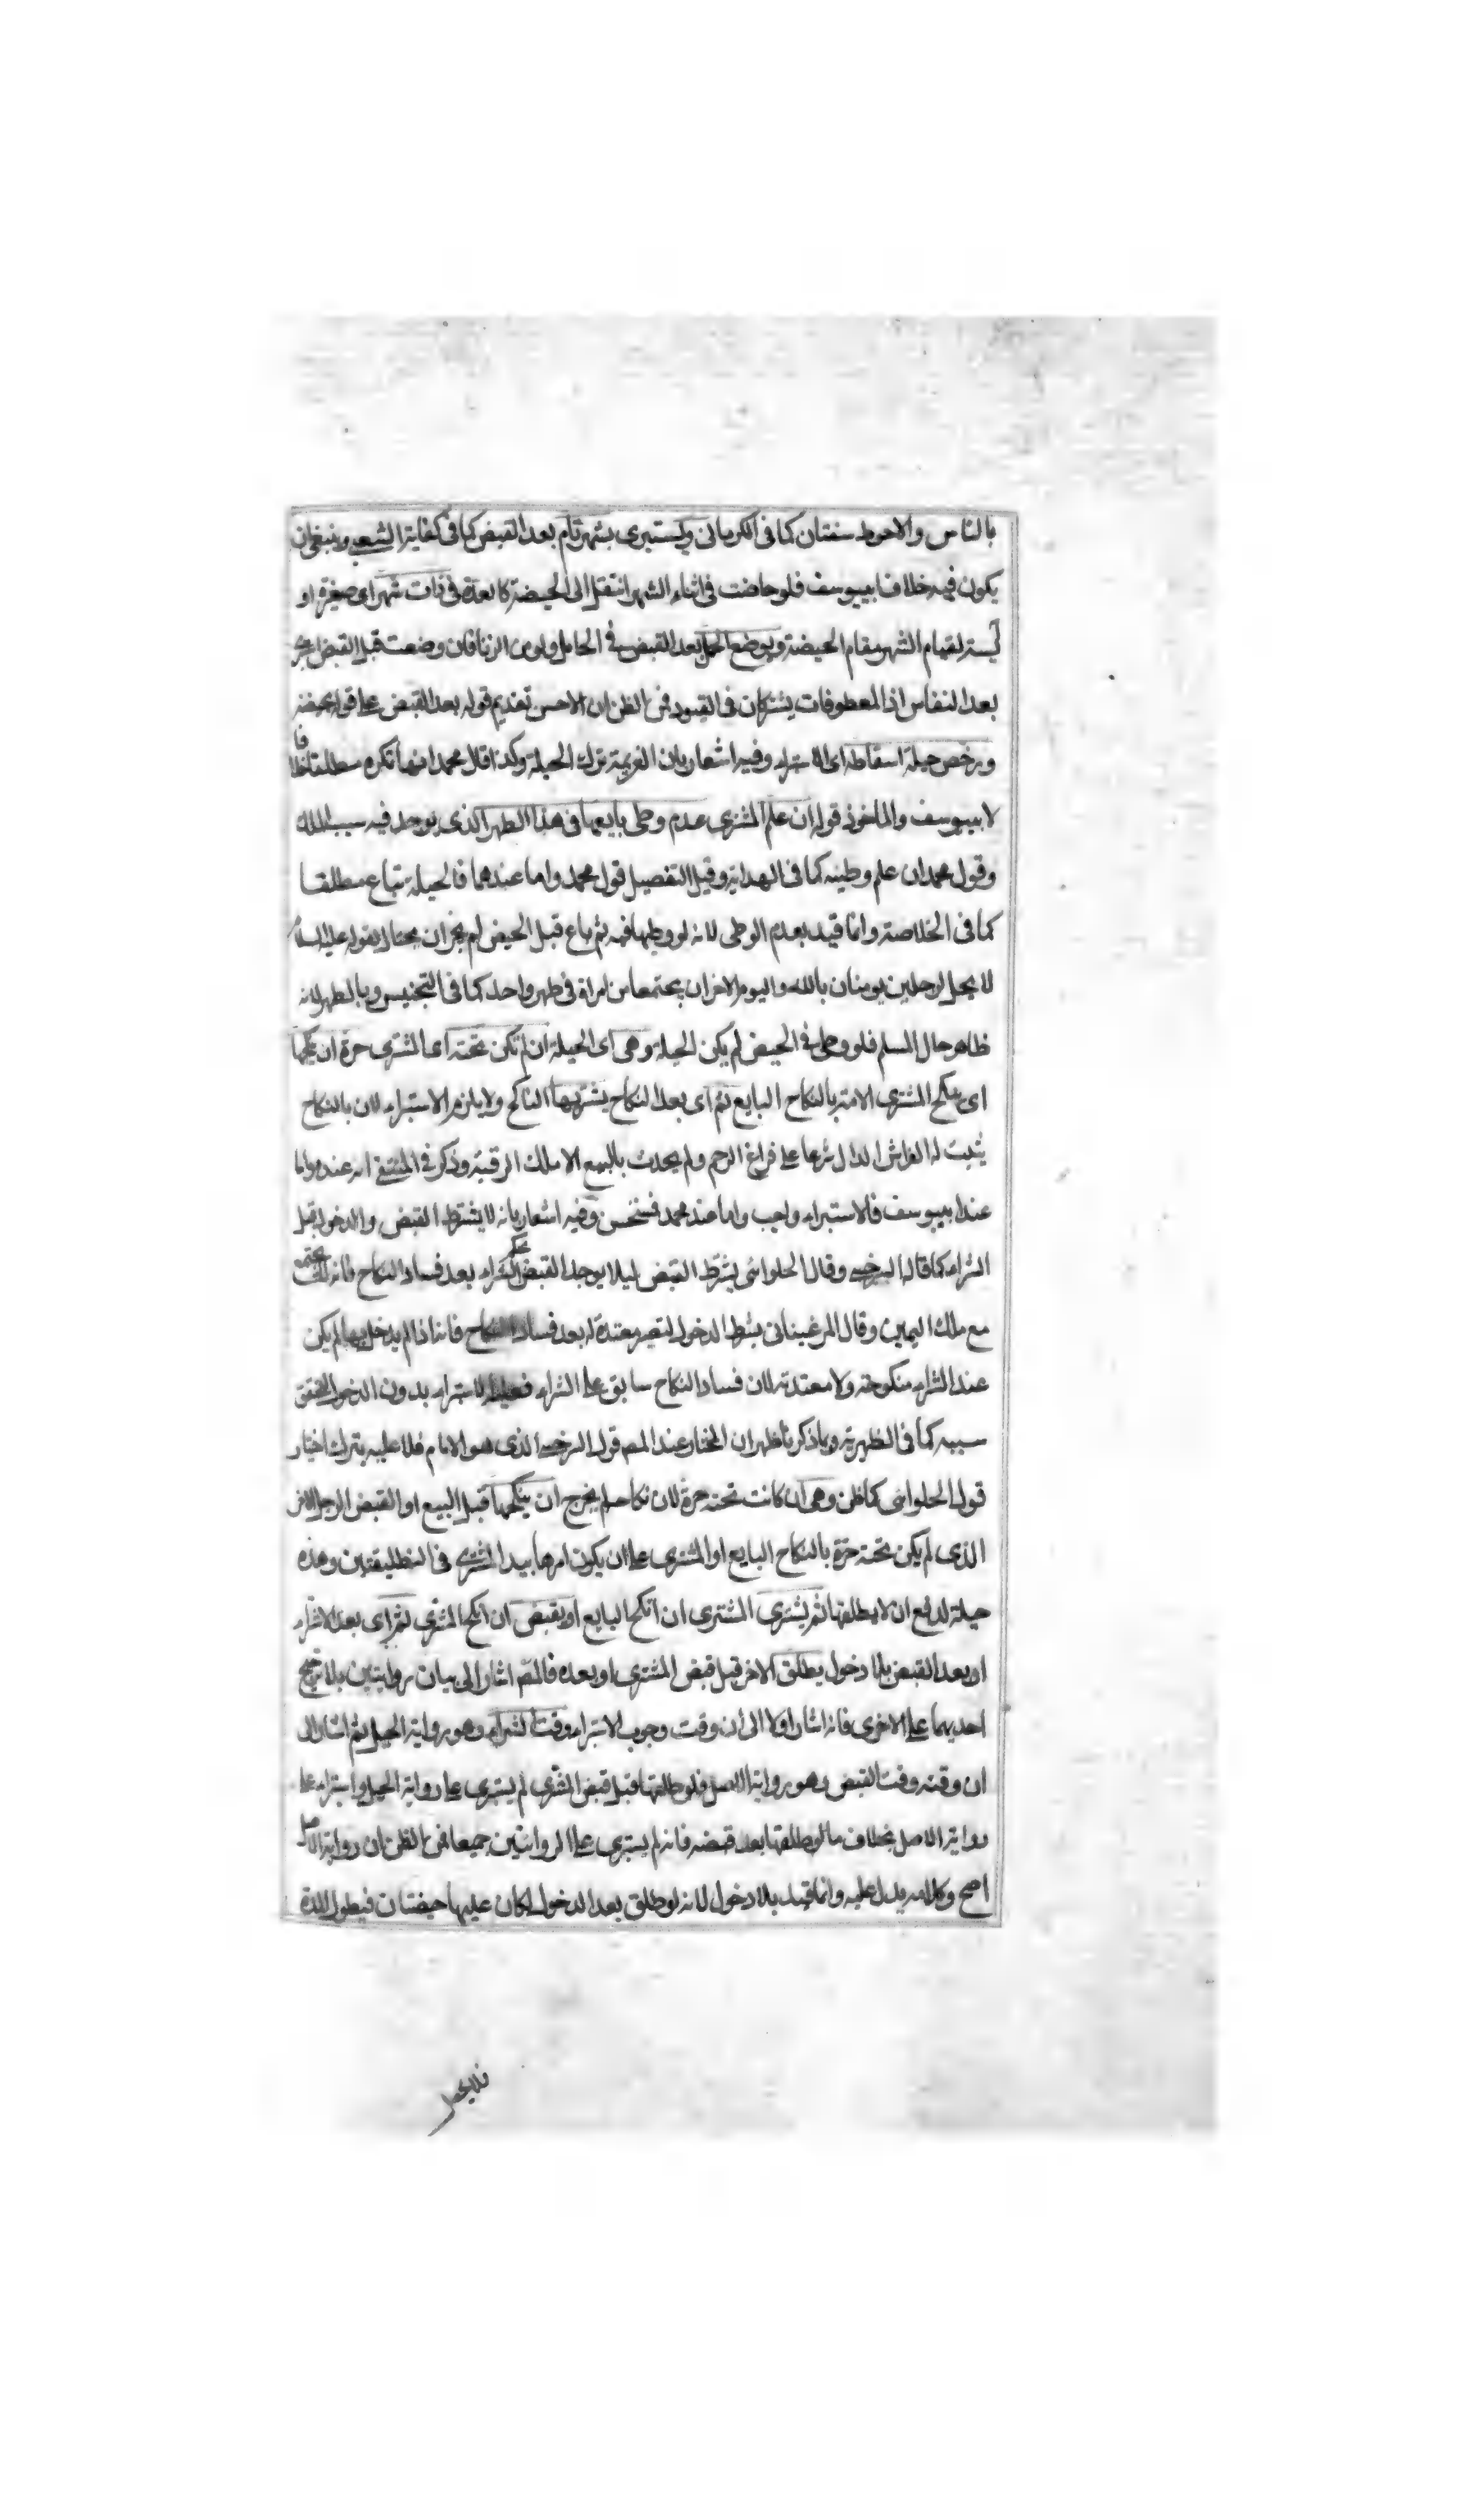 بالناس والاحوط سنتان كما فى الكرمانى ويستبرى بشهر تام بعد القبض كما فى كفاية الشعبى وينبغى ان
يكون فيه خلاف ابييوسف فلو حاضت فى اثناء الشهر انتقل الى الحيضة كالعدة فى ذات شهر اى صغيرة او
آيسة لقيام الشهر مقام الحيضة وبوضع الحمل بعد القبض فى الحامل ولو من الزنا فان وضعت قبل القبض
بعد النفاس اذ المعطوفات يشتركان فى القيود فمن الظن ان الاحسن تقديم قوله بعد القبض على قوله بحيضة
ورخص حيلة اسقاطه اى الاستبراء وفيه اشعار بان العزيمة ترك الحيلة وكذا قال محمد انها تكره مطلقا خلافا
لابييوسف والماخوذ قوله ان علم المشترى عدم وطى بايعها فى هذا الطهر الذى يوجد فيه سبب الملك
وقول محمد ان علم وطيه كما فى الهداية وقيل التفصيل قول محمد واما عندهما فالحيلة تباع مطلقا
كما فى الخلاصة وانما قيد بعدم الوطى لانه لو وطيها فيه ثم باع قبل الحيض لم يجز ان يحتال لقوله عليه السلام
لا يحل لرجلين يومنان بالله واليوم الاخر ان يجتمعا من امراة فى طهر واحد كما فى التجنيس وبالطهر لانه
ظاهر حال المسلم فلو وطى فى الحيض لم يكن الحيلة وهى اى الحيلة ان لم تكن تحته اى المشترى حرة ان ينكحها
اى ينكح المشترى الامة بالنكاح البايع ثم اى بعد النكاح يشتريها الناكح ولا يلزم الاستبراء لان بالنكاح
يثبت له الفراش الدال شرعا على فراغ الرحم ولم يحدث بالبيع الا ملك الرقبة وذكر فى المنتقى انه عنده واما
عند ابييوسف فالاستبراء واجب واما عند محمد فمستحسن وفيه اشعار بانه لا يشترط القبض والدخول قبل
الشراء كما قاله السرخسى وقال الحلوانى يشترط القبض ليلا يوجد القبض بحكم الشراء بعد فساد النكاح فانه لا يجتمع
مع ملك اليمين وقال المرغينانى يشترط الدخول لتصير معتدة له بعد فساد النكاح فانه اذا لم يدخل بها لم يكن
عند الشراء منكوحة ولا معتدته لان فساد النكاح سابق على الشراء فعليه الاستبراء بدون الدخول لتحقق
سببه كما فى الظهيرية وبما ذكرنا ظهر ان المختار عند المص قول السرخسى الذى هو الامام فلا عليه بترك اختيار
قول الحلوانى كما ظن وهى ان كانت تحته حرة لان نكاحه لم يخرج ان ينكحها قبل البيع او القبض الرجل الاخر
الذى لم يكن تحته حرة بالنكاح البايع او المشترى على ان يكون امرها بيد المشترى فى التطليقتين وهذه
حيلة لدفع ان لا يطلقها ثم يشترى المشترى ان انكح البايع او يقبض ان انكح المشترى ثم اى بعد الاشتراء
او بعد القبض بلا دخول يطلق الاخر قبل قبض المشترى او بعده فالمص اشار الى بيان روايتين بلا ترجيح
احديهما على الاخرى فانه اشار اولا الى ان وقت وجوب الاستبراء وقت الشراء وهو رواية الحيل ثم اشار الى
ان وقته وقت القبض وهو رواية الاصل فلو طلقها قبل قبض المشترى لم يستبرى على رواية الحيل واستبراء على
رواية الاصل بخلاف ما لو طلقها بعد قبضه فانه لم يستبرى على الروايتين جميعا فمن الظن ان رواية الاصل
اصح وكلامه يدل عليه وانما قيد بلا دخول لانه لو طلق بعد الدخول لكان عليها حيضتان فيطول المدة
فلا يحصل